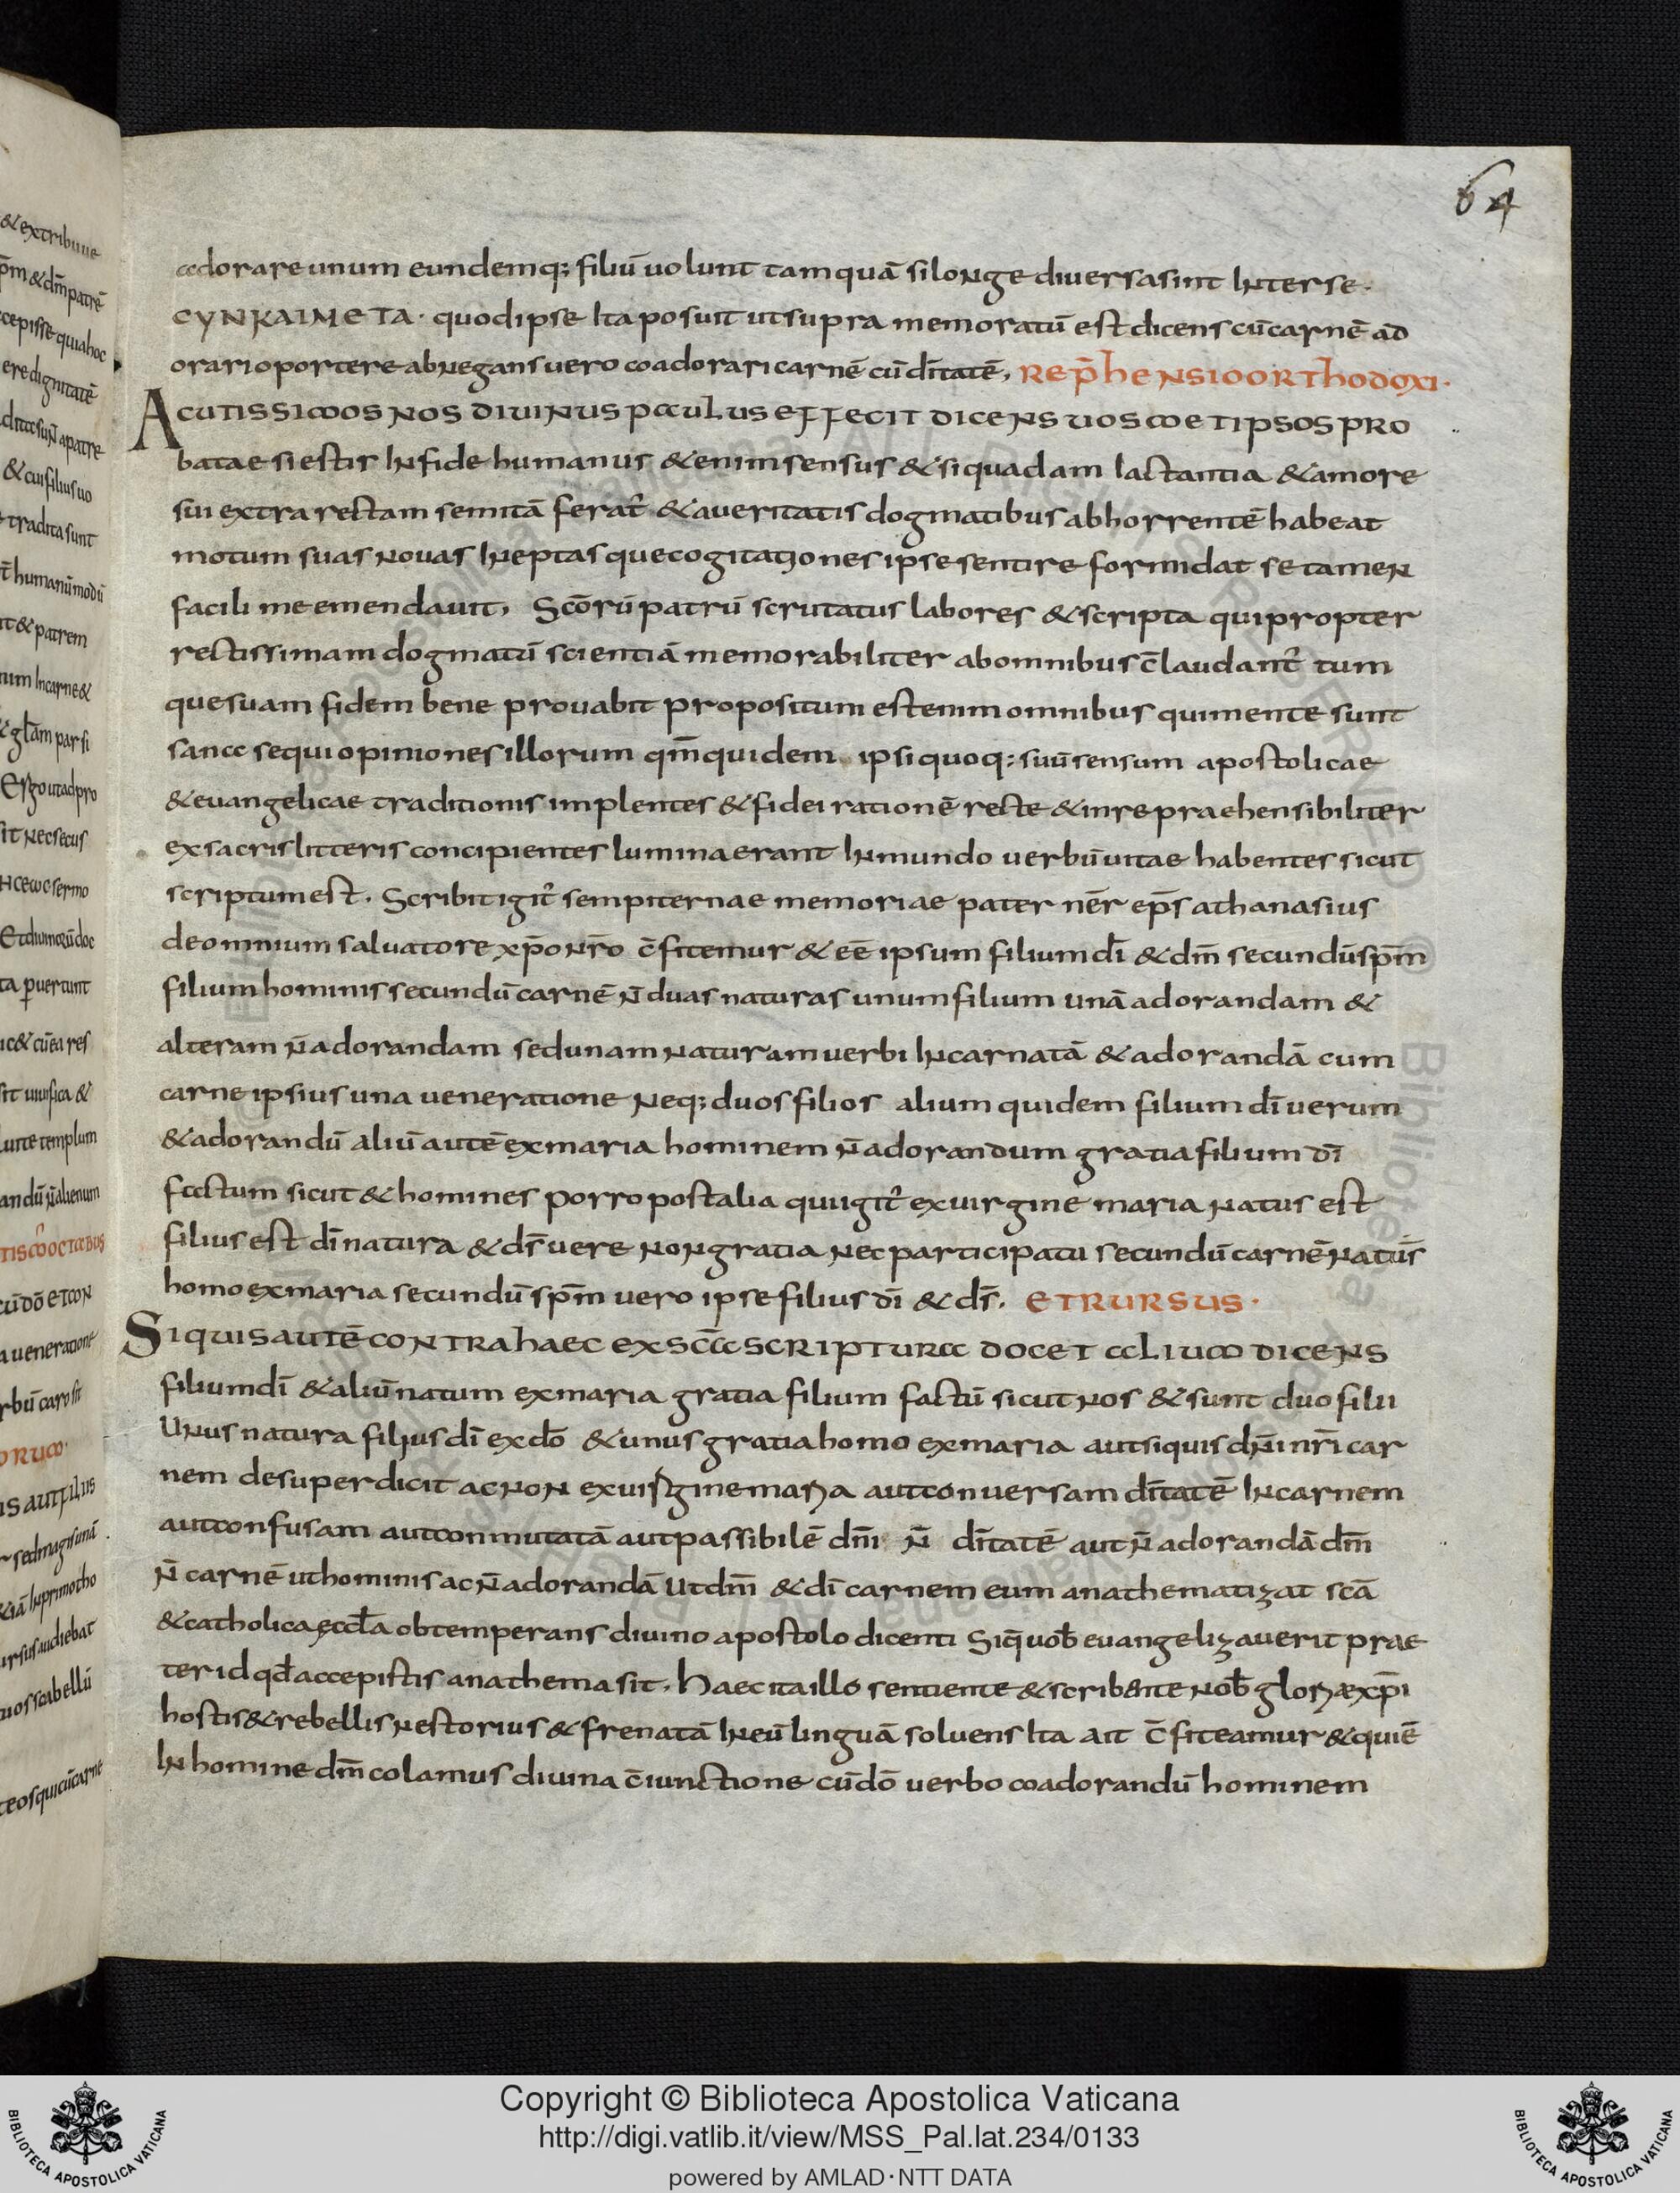 64
adorare unum eundemq; filiū uolunt tam quā si longe diuersa sint Inter se.
CYNKAIMETA. quod ipse Ita posuit ut supra memoratū est dicens cū carnē ad
orari oportere abnegans uero coadorari carnē cū dītatē, REP̄hENSIO ORThODOXI.
ACUTISSIMOS NOS DIUINUS PAULUS EFFECIT DICENS UOSMETIPSOS PRO
batae si estis In fide humanus & enim sensus & si quadam lactantia & amore
sui extra rectam semitā ferat̄ & a ueritatis dogmatibus abhorrentē habeat
motum suas nouas Ineptasque cogitationes ipse sentire formidat se tamen
facilime emendauit, Scōrū patrū scrutatus labores & scripta qui propter
rectissimam dogmatū scientiā memorabiliter ab omnibus c̄laudant̄ tum
que suam fidem bene prouabit propositum est enim omnibus qui mente sunt
sana sequi opiniones illorum qm̄ quidem ipsi quoq; suū sensum apostolicae
& euangelicae traditionis implentes & fidei rationē recte & inrepraehensibiliter
ex sacris litteris concipientes lumina erant In mundo uerbū uitae habentes sicut
scriptum est. Scribit igit̄ sempiternae memoriae pater nēr ep̄s athanasius
de omnium saluatore xp̄o nr̄o c̄fitemur & eē ipsum filium dī & dm̄ secundū sp̄m
filium hominis secundū carnē n̄ duas naturas unum filium unā adorandam &
alteram n̄ adorandam sed unam naturam uerbi Incarnatā & adorandā cum
carne ipsius una ueneratione neq; duos filios alium quidem filium dī uerum
& adorandū aliū autē ex maria hominem n̄ adorandum gratia filium dī
factum sicut & homines porro post alia qui igit̄ ex uirgine maria natus est
filius est dī natura & ds̄ uere non gratia nec participatu secundū carnē natus̄
homo ex maria secundū sp̄m uero ipse filius dī & ds̄. ET RURSUS.
SI QUIS AUTĒ CONTRA HAEC EX SC̄A SCRIPTURA DOCET ALIUM DICENS
filium dī & aliū natum ex maria gratia filium factū sicut nos & sunt duo filii
Unus natura filius dī ex dō & unus gratia homo ex maria aut si quis dn̄i nr̄i car
nem desuper dicit ac non ex uirgine maria aut conuersam dītatē In carnem
aut confusam aut conmutatā aut passibilē dm̄i n̄ dītatē aut n̄ adorandā dm̄
n̄ carnē ut hominis ac n̄ adorandā Ut dm̄ & dī carnem eum anathematizat scā
& catholica eccl̄a obtemperans diuino apostolo dicenti Siq̄ uob̄ euangelizauerit prae
ter id qd̄ accepistis anathema sit. Haec ita illo sentiente & scribente nob̄ gloriae xp̄i
hostis & rebellis nestorius & frenatā In eū linguā soluens Ita ait c̄fiteamur & qui ē
In homine dm̄ colamus diuina c̄iunctione cū dō uerbo coadorandū hominem
Copyright © Biblioteca Apostolica Vaticana
http://digi.vatlib.it/view/MSS_Pal.lat.234/0133
powered by AMLAD·NTT DATA
BIBLIOTECA APOSTOLICA VATICANA
BIBLIOTECA APOSTOLICA VATICANA